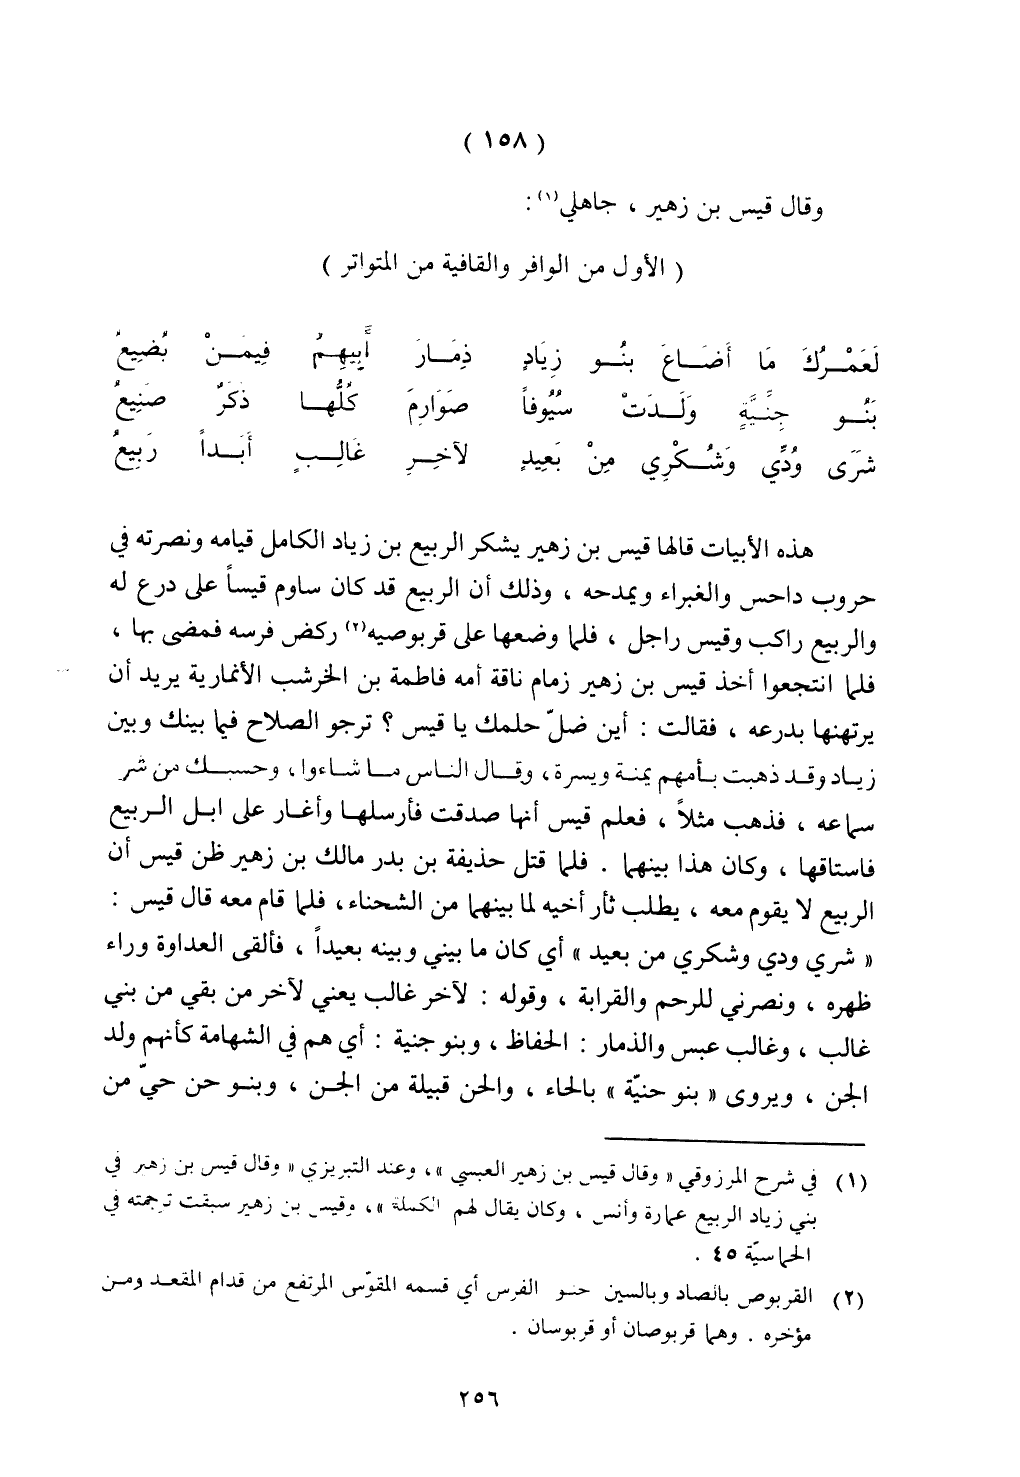 ( ١٥٨ )
وقال قيس بن زهير ، جاهلي(١) :
( الأول من الوافر والقافية من المتواتر )
لَعَمْرُكَ مَا أَضَاعَ بنُو زِيَادٍ ذِمَارَ أَبِيهِمُ فِيمَنْ يُضِيعُ
بَنُو جِنِّيَّةٍ وَلَدَتْ سُيُوفاً صَوَارِمَ كُلُّهَا ذَكَرٌ صَنِيعُ
شَرَى وُدِّي وَشُكْرِي مِنْ بَعِيدٍ لآخِرِ غَالِبٍ أَبَداً رَبِيعُ
هذه الأبيات قالها قيس بن زهير يشكر الربيع بن زياد الكامل قيامه ونصرته في
حروب داحس والغبراء ويمدحه ، وذلك أن الربيع قد كان ساوم قيساً على درع له
والربيع راكب وقيس راجل ، فلما وضعها على قربوصيه(٢) ركض فرسه فمضى بها ،
فلما انتجعوا أخذ قيس بن زهير زمام ناقة أمه فاطمة بن الخرشب الأنمارية يريد أن
يرتهنها بدرعه ، فقالت : أين ضلّ حلمك يا قيس ؟ ترجو الصلاح فيما بينك وبين
زياد وقد ذهبت بأمهم يمنة ويسرة ، وقال الناس ما شاءوا ، وحسبك من شر
سماعه ، فذهب مثلاً ، فعلم قيس أنها صدقت فأرسلها وأغار على ابل الربيع
فاستاقها ، وكان هذا بينهما . فلما قتل حذيفة بن بدر مالك بن زهير ظن قيس أن
الربيع لا يقوم معه ، يطلب ثأر أخيه لما بينهما من الشحناء ، فلما قام معه قال قيس :
« شري ودي وشكري من بعيد » أي كان ما بيني وبينه بعيداً ، فألقى العداوة وراء
ظهره ، ونصرني للرحم والقرابة ، وقوله : لآخر غالب يعني لآخر من بقي من بني
غالب ، وغالب عبس والذمار : الحفاظ ، وبنو جنية : أي هم في الشهامة كأنهم ولد
الجن ، ويروى « بنو حنيّة » بالحاء ، والحن قبيلة من الجن ، وبنو حن حيّ من
(١) في شرح المرزوقي « وقال قيس بن زهير العبسي » ، وعند التبريزي « وقال قيس بن زهير في
بني زياد الربيع عمارة وأنس ، وكان يقال لهم الكملة » ، وقيس بن زهير سبقت ترجمته في
الحماسيّة ٤٥ .
(٢) القربوص بالصاد وبالسين حنو الفرس أي قسمه المقوّس المرتفع من قدام المقعد ومن
مؤخره . وهما قربوصان أو قربوسان .
٢٥٦